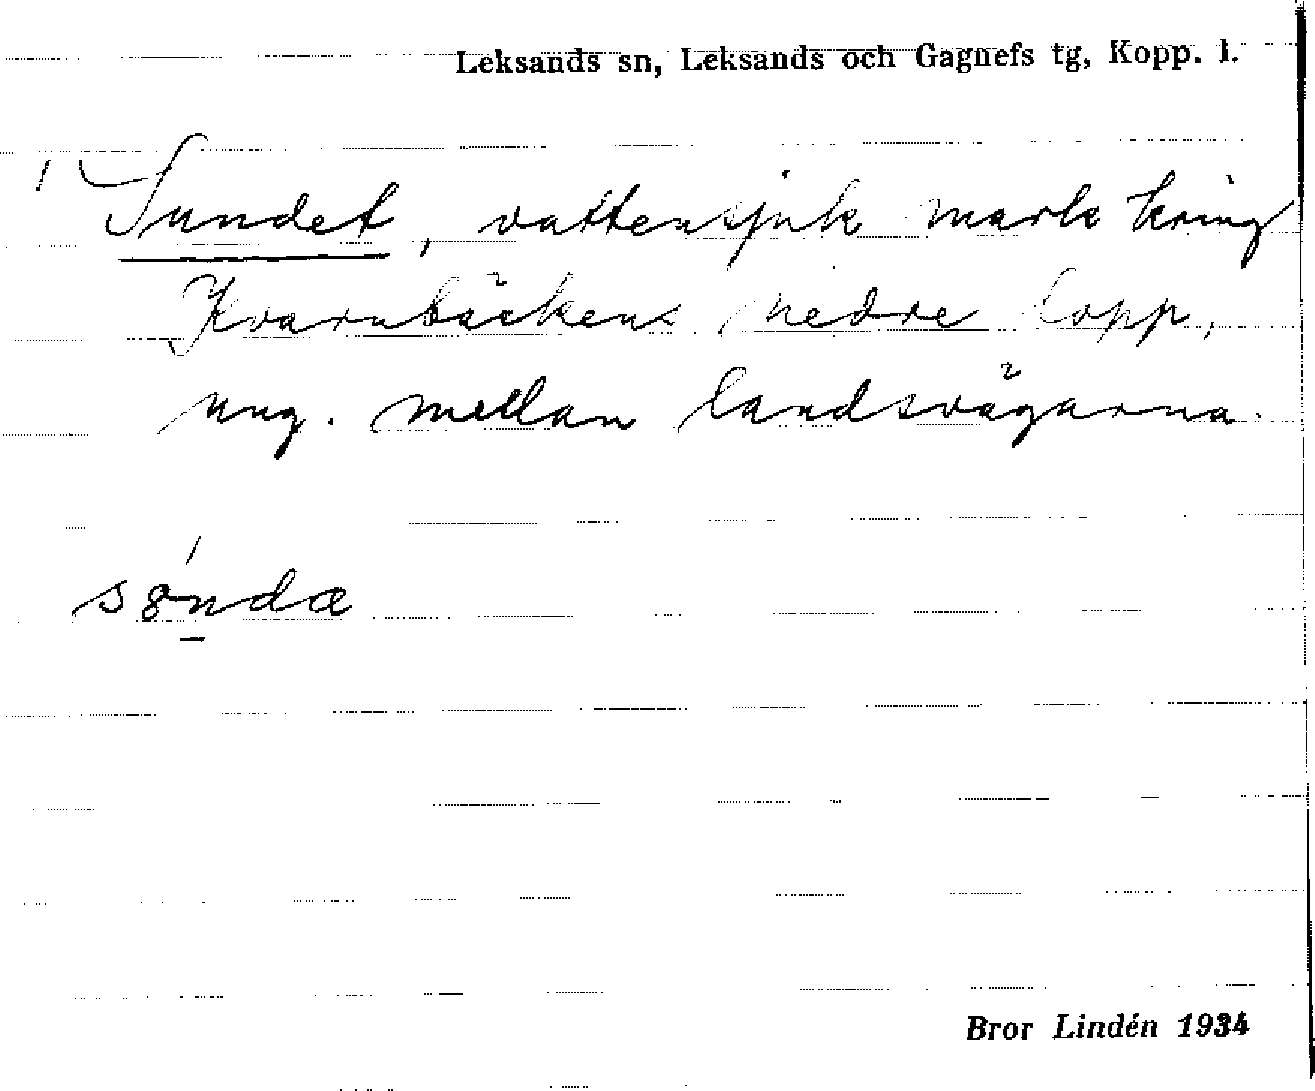 Leksands sn, Leksands och Gagnefs tg, Kopp. l.
Sundet, vattensjuk mark kring
Kvarnbäckens nedre lopp,
ung. mellan landsvägarna.
Bror Lindén 1934